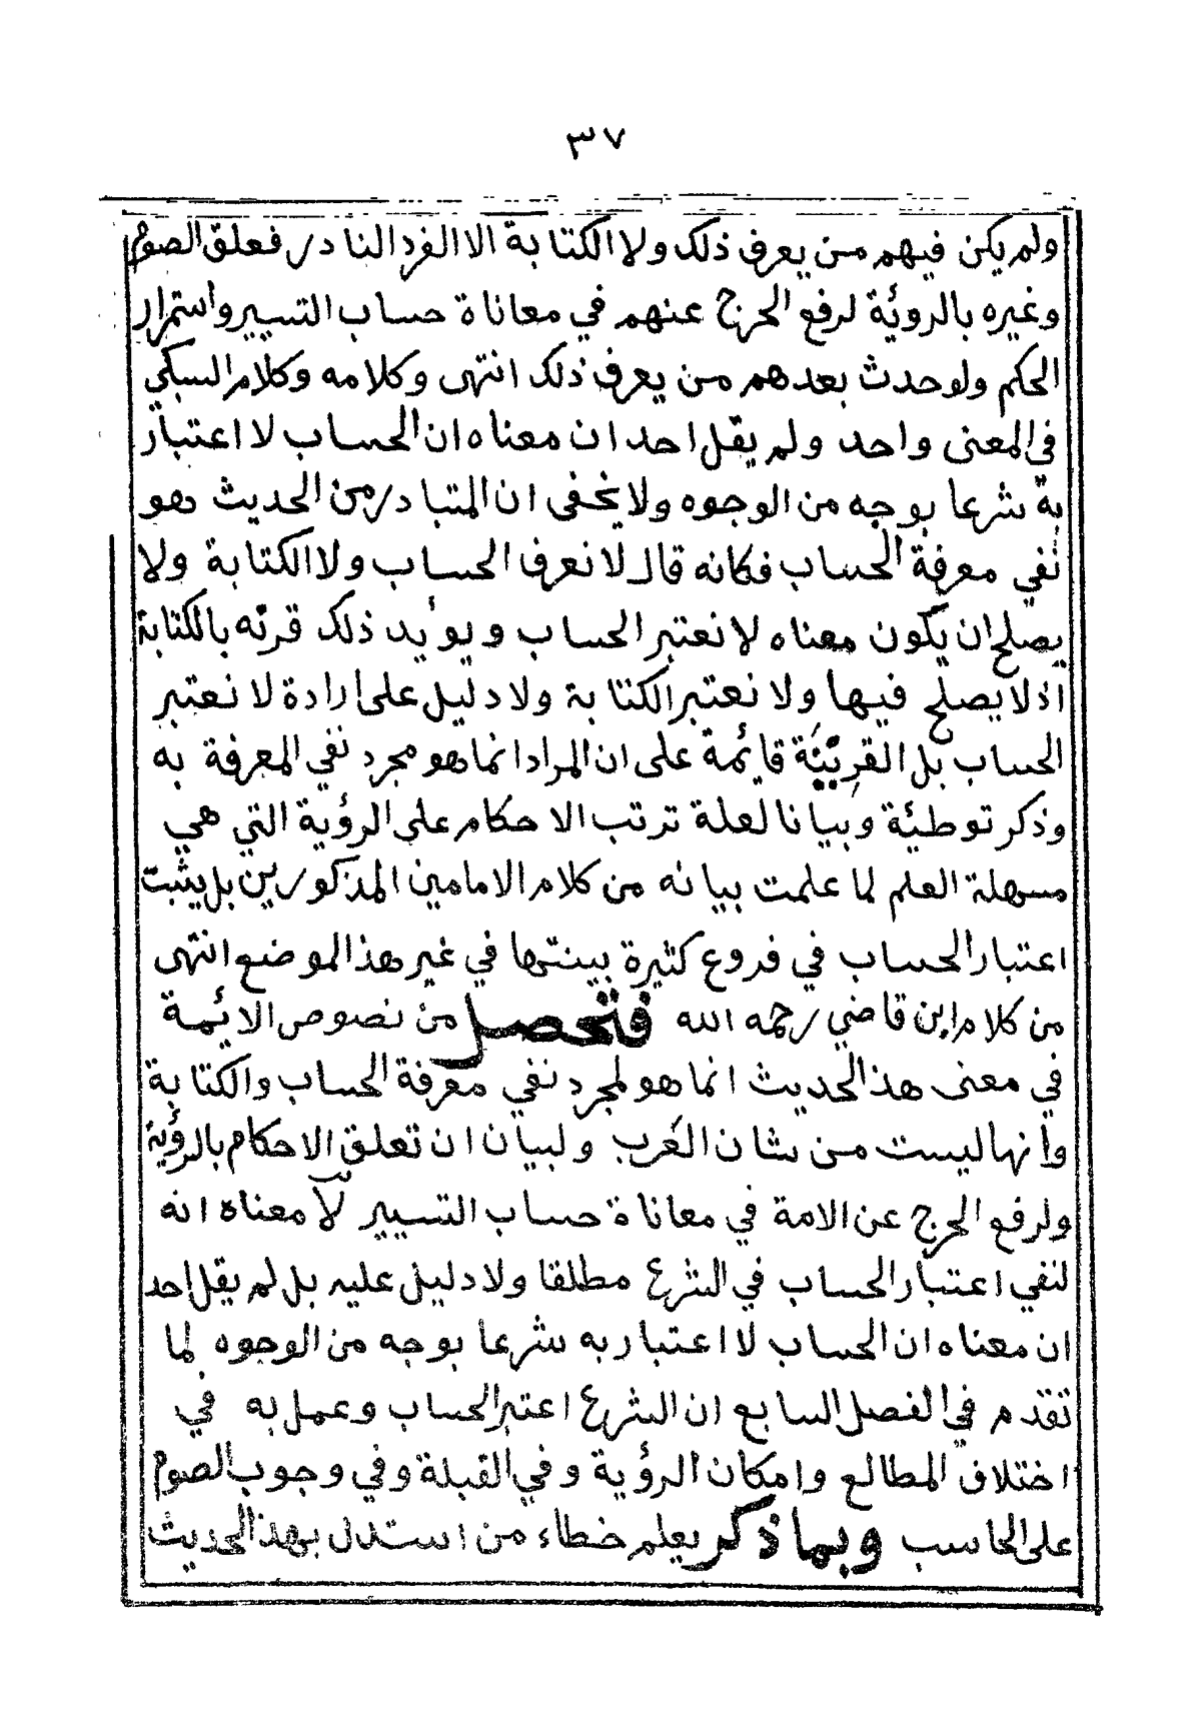 ٣٧
ولم يكن فيهم من يعرف ذلك ولا الكتابة الا الفرد النادر فعلق الصوم
وغيره بالروئية لرفع الحرج عنهم في معاناة حساب التسيير واستمرار
الحكم ولو حدث بعدهم من يعرف ذلك انتهى وكلامه وكلام السبكي
في المعنى واحد ولم يقل احد ان معناه ان الحساب لا اعتبار
به شرعا بوجه من الوجوه ولا يخفى ان المتبادر من الحديث هو
نفي معرفة الحساب فكانه قال لا نعرف الحساب ولا الكتابة ولا
يصلح ان يكون معناه لا نعتبر الحساب ويوأيد ذلك قرنه بالكتابة
اذ لا يصلح فيها ولا نعتبر الكتابة ولا دليل على ارادة لا نعتبر
الحساب بل القرينة قائمة على ان المراد انما هو مجرد نفي المعرفة به
وذكر توطيئة وبيانا لعلة ترتب الاحكام على الرؤية التي هي
مسهلة العلم لما علمت بيانه من كلام الامامين المذكورين بل يثبت
اعتبار الحساب في فروع كثيرة بينتها في غير هذ الموضع انتهى
من كلام ابن قاضي رحمه الله فتحصل من نصوص الائمة
في معنى هذ الحديث انما هو لمجرد نفي معرفة الحساب والكتابة
وانها ليست من شان العرب ولبيان ان تعلق الاحكام بالرؤية
ولرفع الحرج عن الامة في معاناة حساب التسيير لا معناه انه
لنفي اعتبار الحساب في الشرع مطلقا ولا دليل عليه بل لم يقل احد
ان معناه ان الحساب لا اعتبار به شرعا بوجه من الوجوه لما
تقدم في الفصل السابع ان الشرع اعتبر الحساب وعمل به في
اختلاف المطالع وامكان الرؤية وفي القبلة وفي وجوب الصوم
على الحاسب وبما ذكر يعلم خطاء من استدل بهذ الحديث